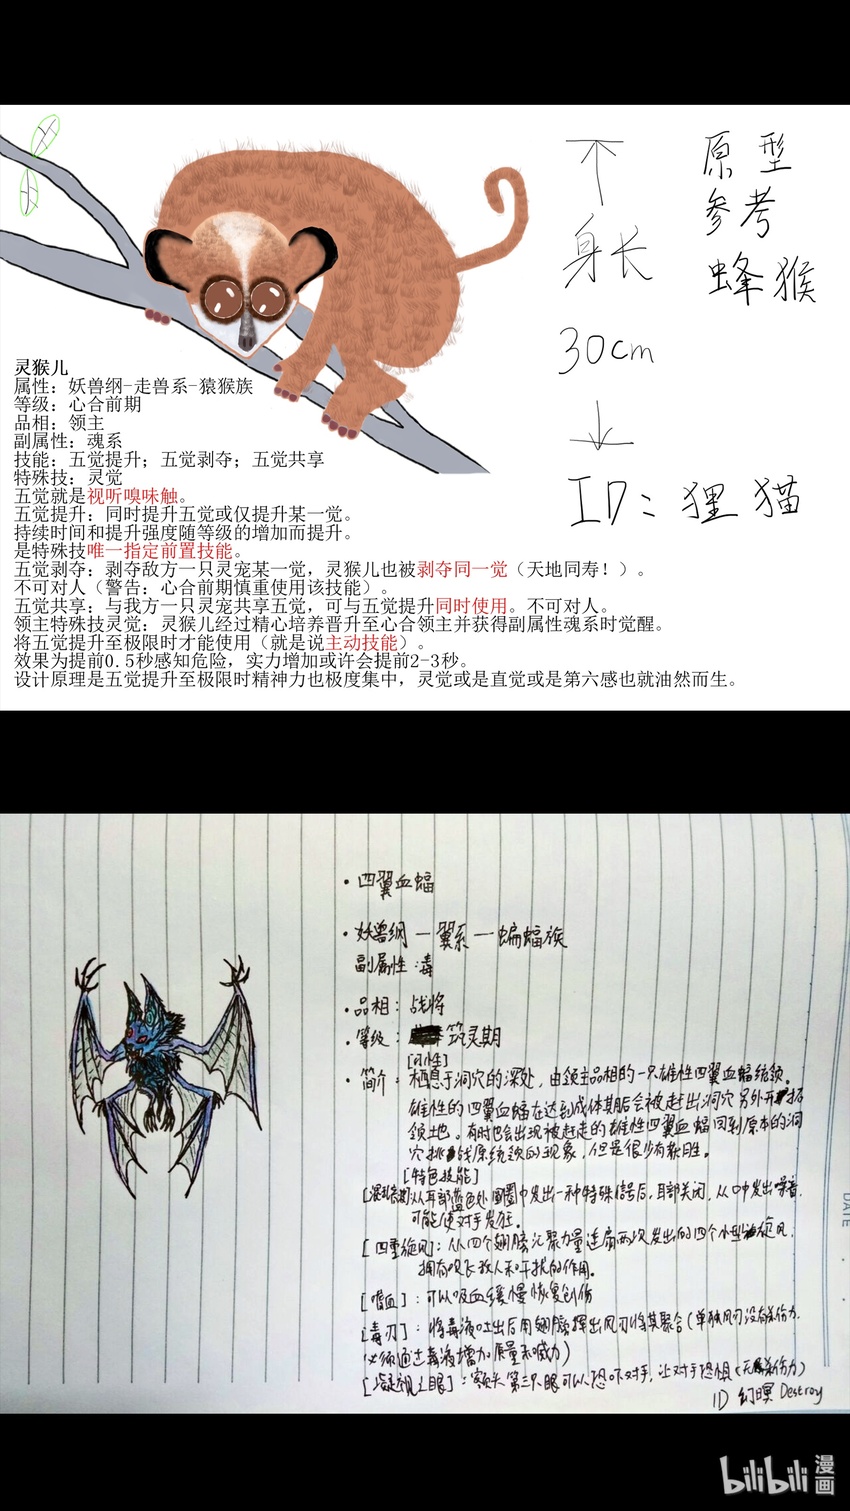 原型
参考
蜂猴
身长
30cm
ID：狸猫
灵猴儿
属性：妖兽纲-走兽系-猿猴族
等级：心合前期
品相：领主
副属性：魂系
技能：五觉提升；五觉剥夺；五觉共享
特殊技：灵觉
五觉就是视听嗅味触。
五觉提升：同时提升五觉或仅提升某一觉。
持续时间和提升强度随等级的增加而提升。
是特殊技唯一指定前置技能。
五觉剥夺：剥夺敌方一只灵宠某一觉，灵猴儿也被剥夺同一觉（天地同寿！）。
不可对人（警告：心合前期慎重使用该技能）。
五觉共享：与我方一只灵宠共享五觉，可与五觉提升同时使用。不可对人。
领主特殊技灵觉：灵猴儿经过精心培养晋升至心合领主并获得副属性魂系时觉醒。
将五觉提升至极限时才能使用（就是说主动技能）。
效果为提前0.5秒感知危险，实力增加或许会提前2-3秒。
设计原理是五觉提升至极限时精神力也极度集中，灵觉或是直觉或是第六感也就油然而生。
·四翼血蝠
·妖兽纲—翼系—蝙蝠族
副属性：毒
·品相：战将
·等级：筑灵期
[习性]
·简介：栖息于洞穴的深处，由领主品相的一只雄性四翼血蝠统领。
雄性的四翼血蝠在达到成体期后会被赶出洞穴另外开拓
领土地。有时也会出现被赶走的雄性四翼血蝠回到原本的洞
穴挑战原统领的现象，但是很少有胜。
[特色技能]
[混乱音波]：从耳部蓝色处圆圈中发出一种特殊信号后，耳部关闭，从口中发出噪音，
可能使对手发狂。
[四重旋风]：从四个翅膀汇聚力量连扇两次发出的四个小型旋风，
拥有吹飞敌人和干扰的作用。
[嗜血]：可以吸血缓慢恢复创伤
[毒刃]：将毒液吐出后用翅膀挥出风刃将其聚合（单独风刃没有杀伤力，
必须通过毒液增加质量和威力）
[凝视之眼]：额头第三只眼可以恐吓对手，让对手恐惧（无杀伤力）
ID 幻暝 Destroy
DATE
bilibili 漫画